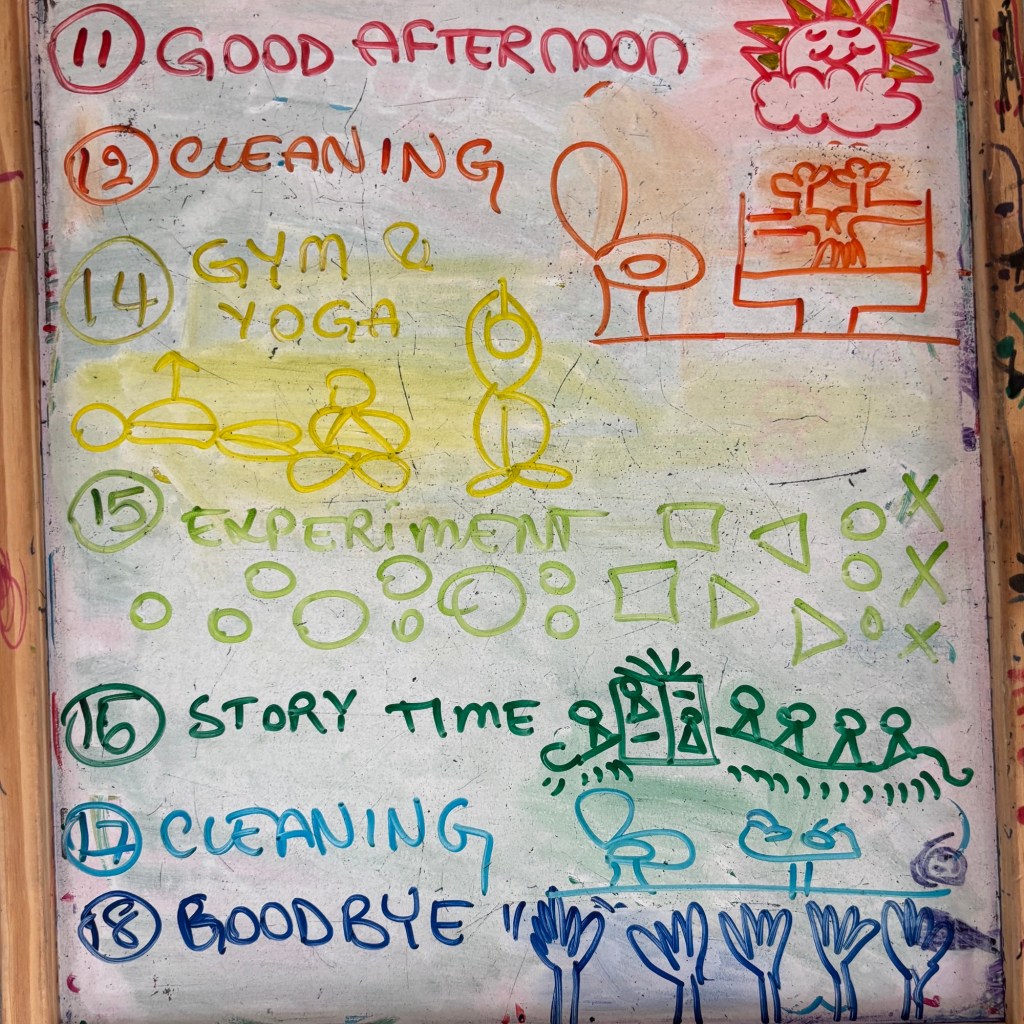 11 GOOD AFTERNOON
12 CLEANING
14 GYM &
YOGA
15 EXPERIMENT
16 STORY TIME
17 CLEANING
18 GOODBYE